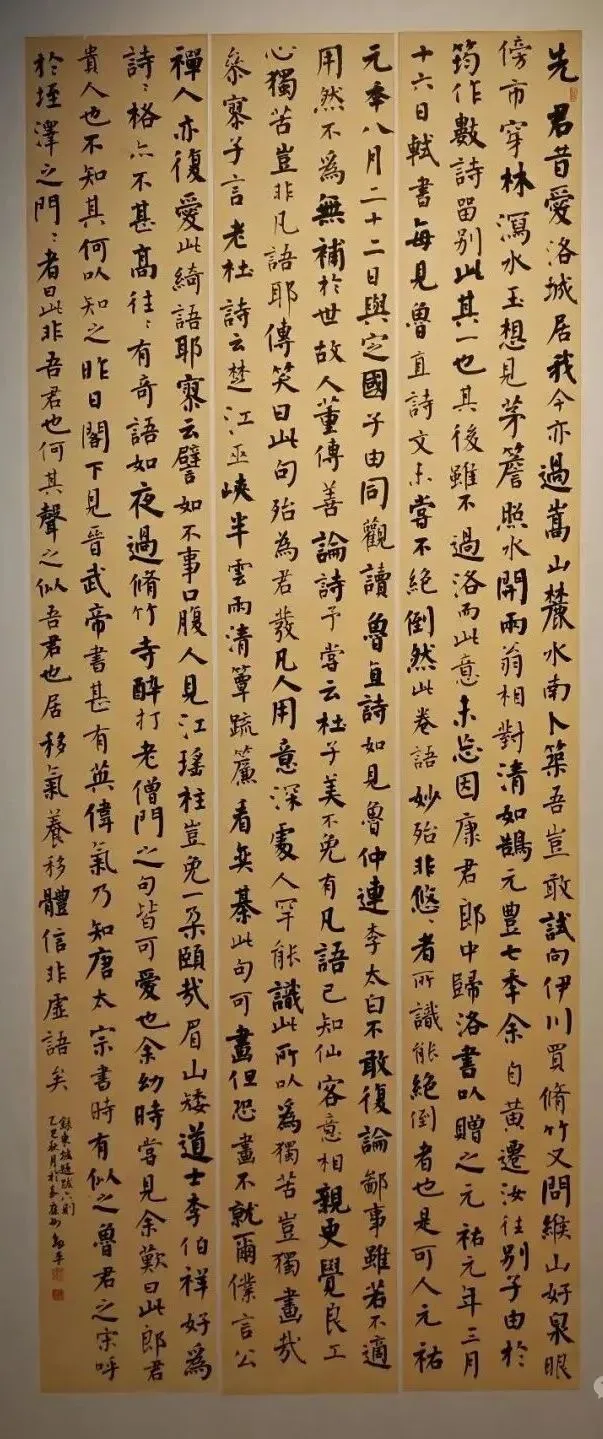 先君昔愛洛城居我今亦過嵩山麓水南卜築吾豈敢試向伊川買脩竹又問緱山好泉眼
傍市穿林瀉水玉想見茅簷照水開兩翁相對清如鵠元豐七年余自黃遷汝往別子由於
筠作數詩留別此其一也其後雖不過洛而此意未忘因康君郎中歸洛書以贈之元祐元年三月
十六日軾書每見魯直詩文未嘗不絕倒然此卷語妙殆非悠〻者所識能絕倒者也是可人元祐
元年八月二十二日與定國子由同觀讀魯直詩如見魯仲連李太白不敢復論鄙事雖若不適
用然不為無補於世故人董傳善論詩予嘗云杜子美不免有凡語已知仙客意相親更覺良工
心獨苦豈非凡語耶傳笑曰此句殆為君發凡人用意深處人罕能識此所以為獨苦豈獨畫哉
參寥子言老杜詩云楚江巫峽半雲雨清簟疏簾看奕棊此句可畫但恐畫不就爾僕言公
禪人亦復愛此綺語耶寥云譬如不事口腹人見江瑤柱豈免一朵頤哉眉山矮道士李伯祥好為
詩〻格亦不甚高往〻有奇語如夜過脩竹寺醉打老僧門之句皆可愛也余幼時嘗見余歎曰此郎君
貴人也不知其何以知之昨日閣下見晉武帝書甚有英偉氣乃知唐太宗書時有似之魯君之宋呼
於垤澤之門〻者曰此非吾君也何其聲之似吾君也居移氣養移體信非虛語矣
錄東坡題跋六則
乙巳秋月於